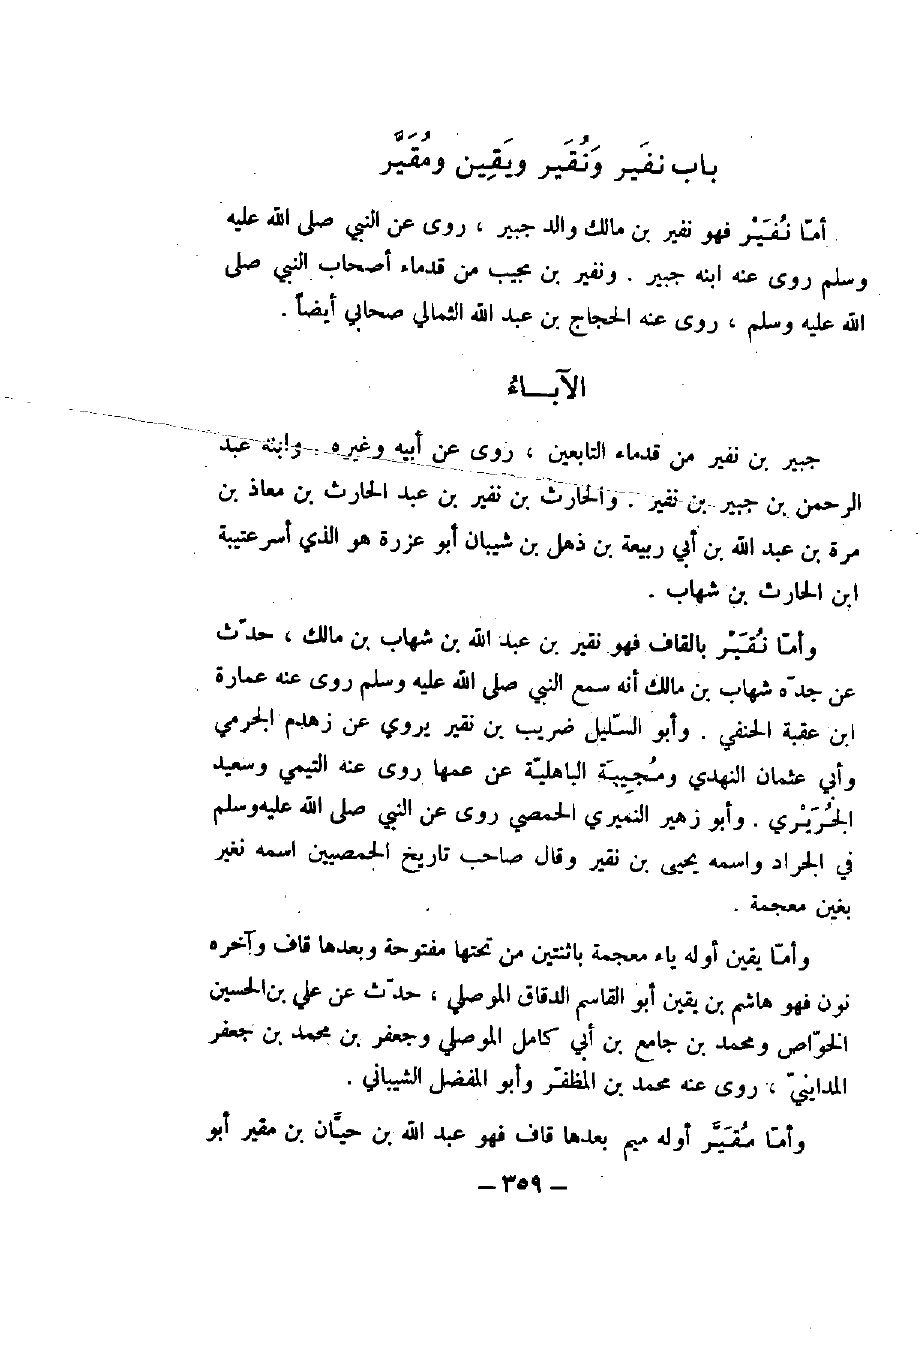 باب نفَير وَنُقَير ويَقِين ومُقَيَّر
أمّا نُفَيْر فهو نفير بن مالك والد جبير ، روى عن النبي صلى الله عليه
وسلم روى عنه ابنه جبير . ونفير بن مجيب من قدماء أصحاب النبي صلى
الله عليه وسلم ، روى عنه الحجاج بن عبد الله الثمالي صحابي أيضاً .
الآبـــاءُ
جبير بن نفير من قدماء التابعين ، روى عن أبيه وغيره . وابنه عبد
الرحمن بن جبير بن نفير . والحارث بن نفير بن عبد الحارث بن معاذ بن
مرة بن عبد الله بن أبي ربيعة بن ذهل بن شيبان أبو عزرة هو الذي أسر عتيبة
ابن الحارث بن شهاب .
وأمّا نُقَيْر بالقاف فهو نقير بن عبد الله بن شهاب بن مالك ، حدّث
عن جدّه شهاب بن مالك أنه سمع النبي صلى الله عليه وسلم روى عنه عمارة
ابن عقبة الحنفي . وأبو السّليل ضريب بن نقير يروي عن زهدم الجرمي
وأبي عثمان النهدي ومُجِيبَة الباهليّة عن عمها روى عنه التيمي وسعيد
الجُرَيْري . وأبو زهير النميري الحمصي روى عن النبي صلى الله عليه وسلم
في الجراد واسمه يحيى بن نقير وقال صاحب تاريخ الحمصيين اسمه نغير
بغين معجمة .
وأمّا يقين أوله ياء معجمة باثنتين من تحتها مفتوحة وبعدها قاف وآخره
نون فهو هاشم بن يقين أبو القاسم الدقاق الموصلي ، حدّث عن علي بن الحسين
الخوّاص ومحمد بن جامع بن أبي كامل الموصلي وجعفر بن محمد بن جعفر
المدايني ، روى عنه محمد بن المظفّر وأبو المفضل الشيباني .
وأمّا مُقَيَّر أوله ميم بعدها قاف فهو عبد الله بن حيَّان بن مقير أبو
– ٣٥٩ –